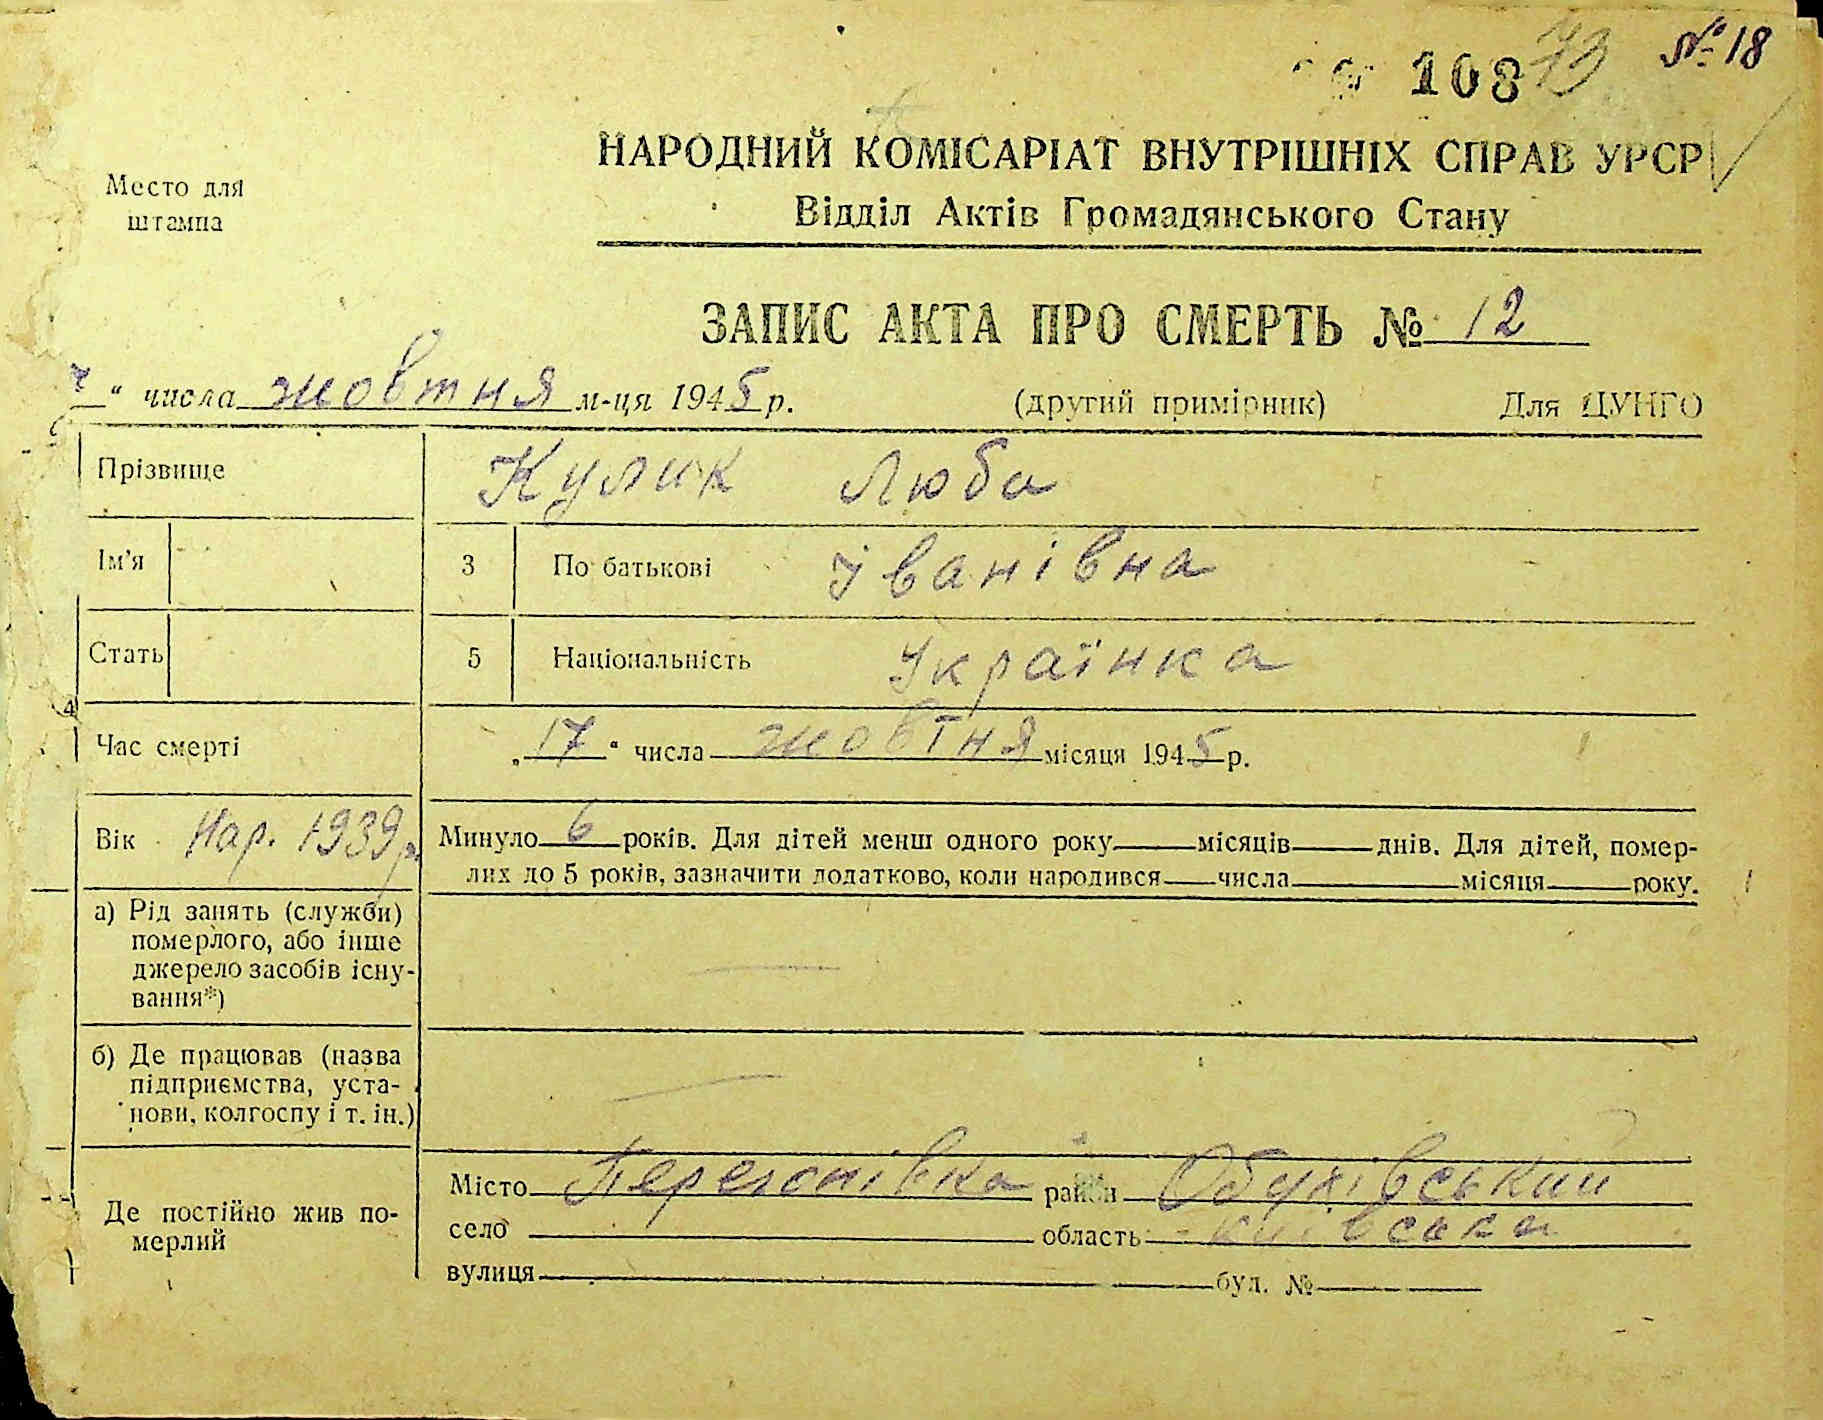 108 73 № 18
НАРОДНИЙ КОМІСАРІАТ ВНУТРІШНІХ СПРАВ УРСР
Место для
штампа
Відділ Актів Громадянського Стану
ЗАПИС АКТА ПРО СМЕРТЬ № 12
" числа жовтня м-ця 1945 р. (другий примірник) Для ЦУНГО
Прізвище Кулик Люба
Ім'я 3 По батькові Іванівна
Стать 5 Національність Українка
Час смерті „17" числа жовтня місяця 1945 р.
Вік Нар. 1939 р. Минуло 6 років. Для дітей менш одного року місяців днів. Для дітей, помер-
лих до 5 років, зазначити додатково, коли народився числа місяця року.
а) Рід занять (служби)
померлого, або інше
джерело засобів існу-
вання*)
б) Де працював (назва
підприємства, уста-
нови, колгоспу і т. ін.)
Де постійно жив по-
мерлий
Місто Перегонівка район Обухівський
село область Київська
вулиця буд. №